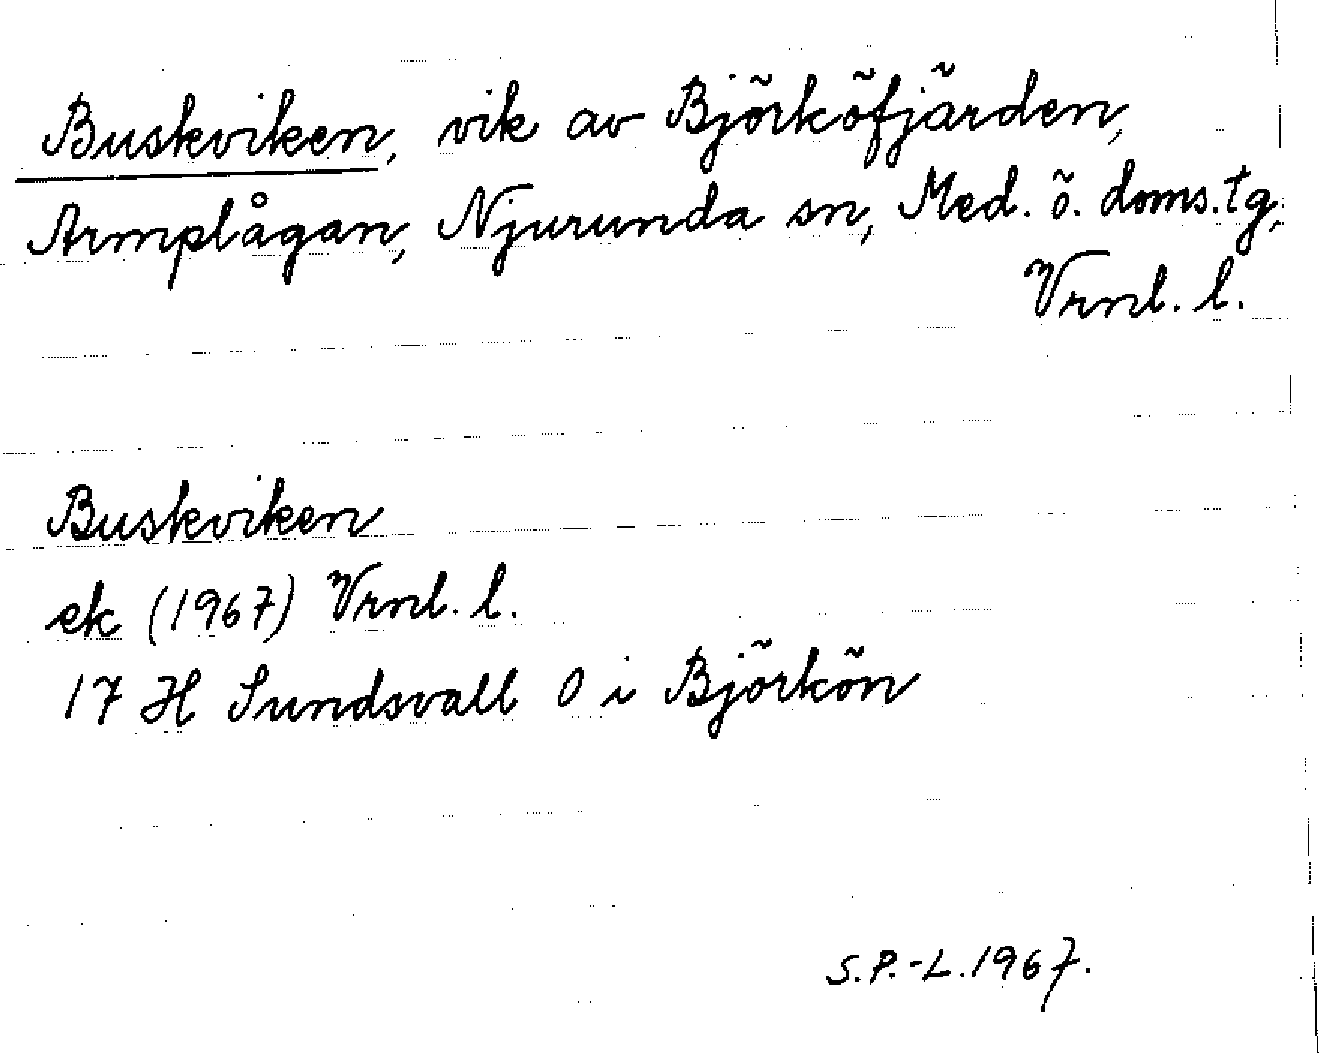 Buskviken, vik av Björköfjärden,
Armplågan, Njurunda sn, Med. ö. doms.tg,
Vrnl. l.
Buskviken
ek (1967) Vrnl. l.
17 H Sundsvall O i Björkön
S.P.-L.1967.